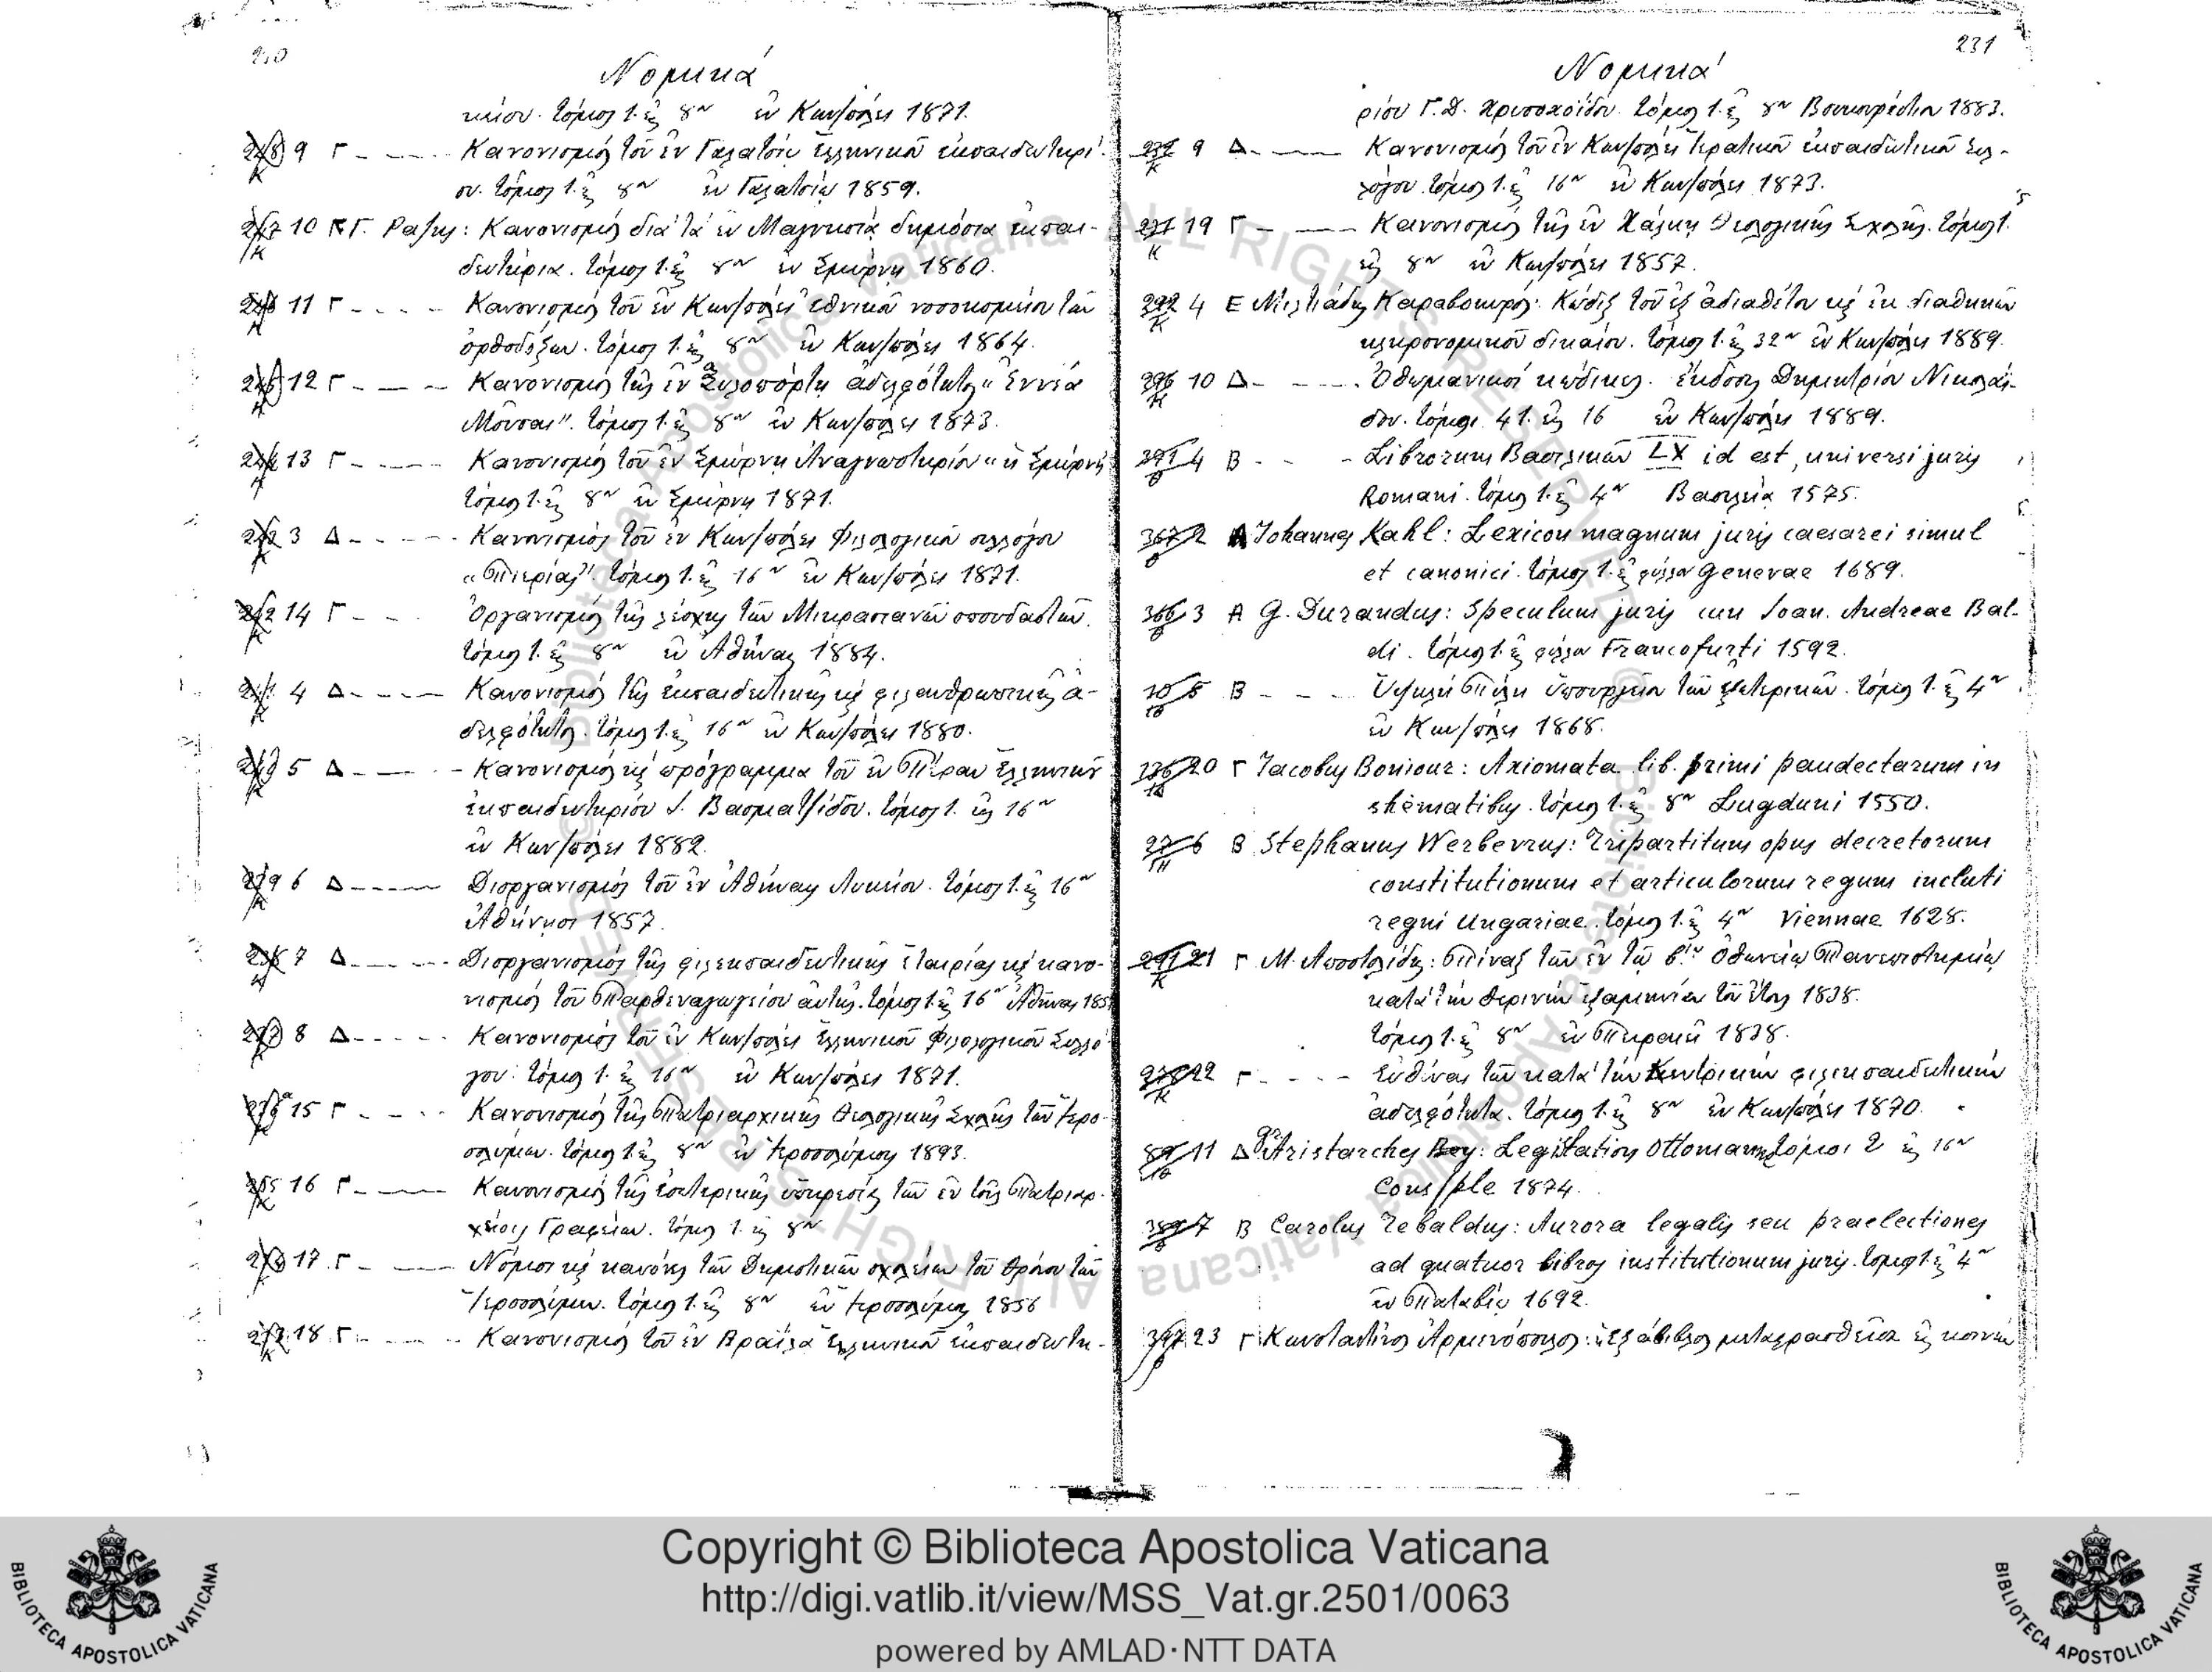 230
Νομικά
κίου. τόμος 1. εἰς 8ον ἐν Κων/πόλει 1871.
9 Γ - ---- Κανονισμός τοῦ ἐν Γαλατσίῳ Ἑλληνικοῦ ἐκπαιδευτηρί-
ου. τόμος 1. εἰς 8ον ἐν Γαλατσίῳ 1859.
10 Γ. : Κανονισμός διά τά ἐν Μαγνησίᾳ δημόσια ἐκπαι-
δευτήρια. τόμος 1. εἰς 8ον ἐν Σμύρνῃ 1860.
11 Γ - - - - Κανονισμός τοῦ ἐν Κων/πόλει ἐθνικοῦ νοσοκομείου τῶν
ὀρθοδόξων. τόμος 1. εἰς 8ον ἐν Κων/πόλει 1864.
12 Γ - -- - Κανονισμός τῆς ἐν Ξυλοπόρτῃ ἀδελφότητος "Ἐννέα
Μοῦσαι". τόμος 1. εἰς 8ον ἐν Κων/πόλει 1873.
13 Γ - ---- Κανονισμός τοῦ ἐν Σμύρνῃ Ἀναγνωστηρίου "ἡ Σμύρνη
τόμος 1. εἰς 8ον ἐν Σμύρνῃ 1871.
3 Δ - - - -- Κανονισμός τοῦ ἐν Κων/πόλει Φιλολογικοῦ συλλόγου
"Πιερίας". τόμος 1. εἰς 16ον ἐν Κων/πόλει 1871.
14 Γ - - - Ὀργανισμός τῆς λέσχης τῶν Μικρασιανῶν σπουδαστῶν.
τόμος 1. εἰς 8ον ἐν Ἀθήναις 1884.
4 Δ - - -- Κανονισμός τῆς ἐκπαιδευτικῆς κς φιλανθρωπικῆς ἀ-
δελφότητος. τόμος 1. εἰς 16ον ἐν Κων/πόλει 1880.
5 Δ - -- - - Κανονισμός κς πρόγραμμα τοῦ ἐν Πέραν Ἑλληνικοῦ
ἐκπαιδευτηρίου Βασματζίδου. τόμος 1. εἰς 16ον
ἐν Κων/πόλει 1882.
6 Δ ----- Διοργανισμός τοῦ ἐν Ἀθήναις Λυκείου. τόμος 1. εἰς 16ον
Ἀθήνησι 1857.
7 Δ ---- Διοργανισμός τῆς φιλεκπαιδευτικῆς ἑταιρίας κς κανο-
νισμός τοῦ Παρθεναγωγείου αὐτῆς. τόμος 1. εἰς 16ον Ἀθῆναι 185
8 Δ - - - - - Κανονισμός τοῦ ἐν Κων/πόλει Ἑλληνικοῦ Φιλολογικοῦ Συλλό-
γου. τόμος 1. εἰς 16ον ἐν Κων/πόλει 1871.
15 Γ - - - - Κανονισμός τῆς Πατριαρχικῆς Θεολογικῆς Σχολῆς τῶν Ἱερο-
σολύμων. τόμος 1. εἰς 8ον ἐν Ἱεροσολύμοις 1893.
16 Γ - --- Κανονισμός τῆς ἐσωτερικῆς ὑπηρεσίας τῶν ἐν τοῖς Πατριαρ-
χείοις Γραφείων. τόμος 1. εἰς 8ον
17 Γ - --- Νόμοι κς κανόνες τῶν Δημοτικῶν σχολείων τοῦ Θρόνου τῶν
Ἱεροσολύμων. τόμος 1. εἰς 8ον ἐν Ἱεροσολύμοις 1856
18 Γ - --- - Κανονισμός τοῦ ἐν Βραΐλᾳ Ἑλληνικοῦ ἐκπαιδευτη-
231
Νομικά
ρίου Γ. Δ. Χρυσοχοΐδου. τόμος 1. εἰς 8ον Βουκουρέστιον 1883.
9 Δ - --- Κανονισμός τοῦ ἐν Κων/πόλει Ἱερατικοῦ ἐκπαιδευτικοῦ Συλ-
λόγου. τόμος 1. εἰς 16ον ἐν Κων/πόλει 1873.
19 Γ - --- Κανονισμός τῆς ἐν Χάλκῃ Θεολογικῆς Σχολῆς. τόμος 1.
εἰς 8ον ἐν Κων/πόλει 1857.
292 4 Ε Μιλτιάδης Καραβοκυρός: Κώδιξ τοῦ ἐξ ἀδιαθέτου κς ἐκ διαθηκῶν
κληρονομικοῦ δικαίου. τόμος 1. εἰς 32ον ἐν Κων/πόλει 1889.
10 Δ - - - - Ὀθωμανικοί κώδικες. ἔκδοσις Δημητρίου Νικολαΐ-
δου. τόμοι 41. εἰς 16 ἐν Κων/πόλει 1889.
4 Β - - - Librorum Βασιλικῶν LX id est, universi juris
Romani. τόμος 1. εἰς 4ον Βασιλείᾳ 1575.
367 2 Α Johannes Kahl: Lexicon magnum juris caesarei simul
et canonici. τόμος 1. εἰς φύλλον Genevae 1689.
366 3 Α G. Durandus: Speculum juris cum Ioan. Andreae Bal-
di. τόμος 1. εἰς φύλλον Francofurti 1592.
5 Β - - - Ὑψηλή Πύλη ὑπουργεῖον τῶν ἐξωτερικῶν. τόμος 1. εἰς 4ον
ἐν Κων/πόλει 1868.
20 Γ Iacobus Boniour: Axiomata lib. primi pandectarum in
shematibus. τόμος 1. εἰς 8ον Lugduni 1550.
6 Β Stephanus Werbevzus: Tripartitum opus decretorum
constitutionum et articulorum regum incluti
regni Ungariae. τόμος 1. εἰς 4ον Viennae 1628.
21 Γ Μ. Ἀποστολίδης: Πίναξ τῶν ἐν τῷ Ὀθωνείῳ Πανεπιστημίῳ
κατά τήν θερινήν ἑξαμηνίαν τοῦ ἔτους 1838.
τόμος 1. εἰς 8ον ἐν Πειραιεῖ 1838.
22 Γ - - - - Εὐθύναι τῶν κατά τήν Κεντρικήν φιλεκπαιδευτικήν
ἀδελφότητα. τόμος 1. εἰς 8ον ἐν Κων/πόλει 1870.
11 Δ Aristarches Bey: Legislation Ottomane τόμοι 2 εἰς 16ον
Cons/ple 1874.
7 Β Carolus Tebaldus: Aurora legalis seu praelectiones
ad quatuor libros institutionum juris. τόμος 1. εἰς 4ον
ἐν Παταβίῳ 1692.
23 Γ Κωνσταντῖνος Ἁρμενόπουλος: ἡ ἑξάβιβλος μεταφρασθεῖσα εἰς κοινήν
Copyright © Biblioteca Apostolica Vaticana
http://digi.vatlib.it/view/MSS_Vat.gr.2501/0063
powered by AMLAD·NTT DATA
BIBLIOTECA APOSTOLICA VATICANA
BIBLIOTECA APOSTOLICA VATICANA